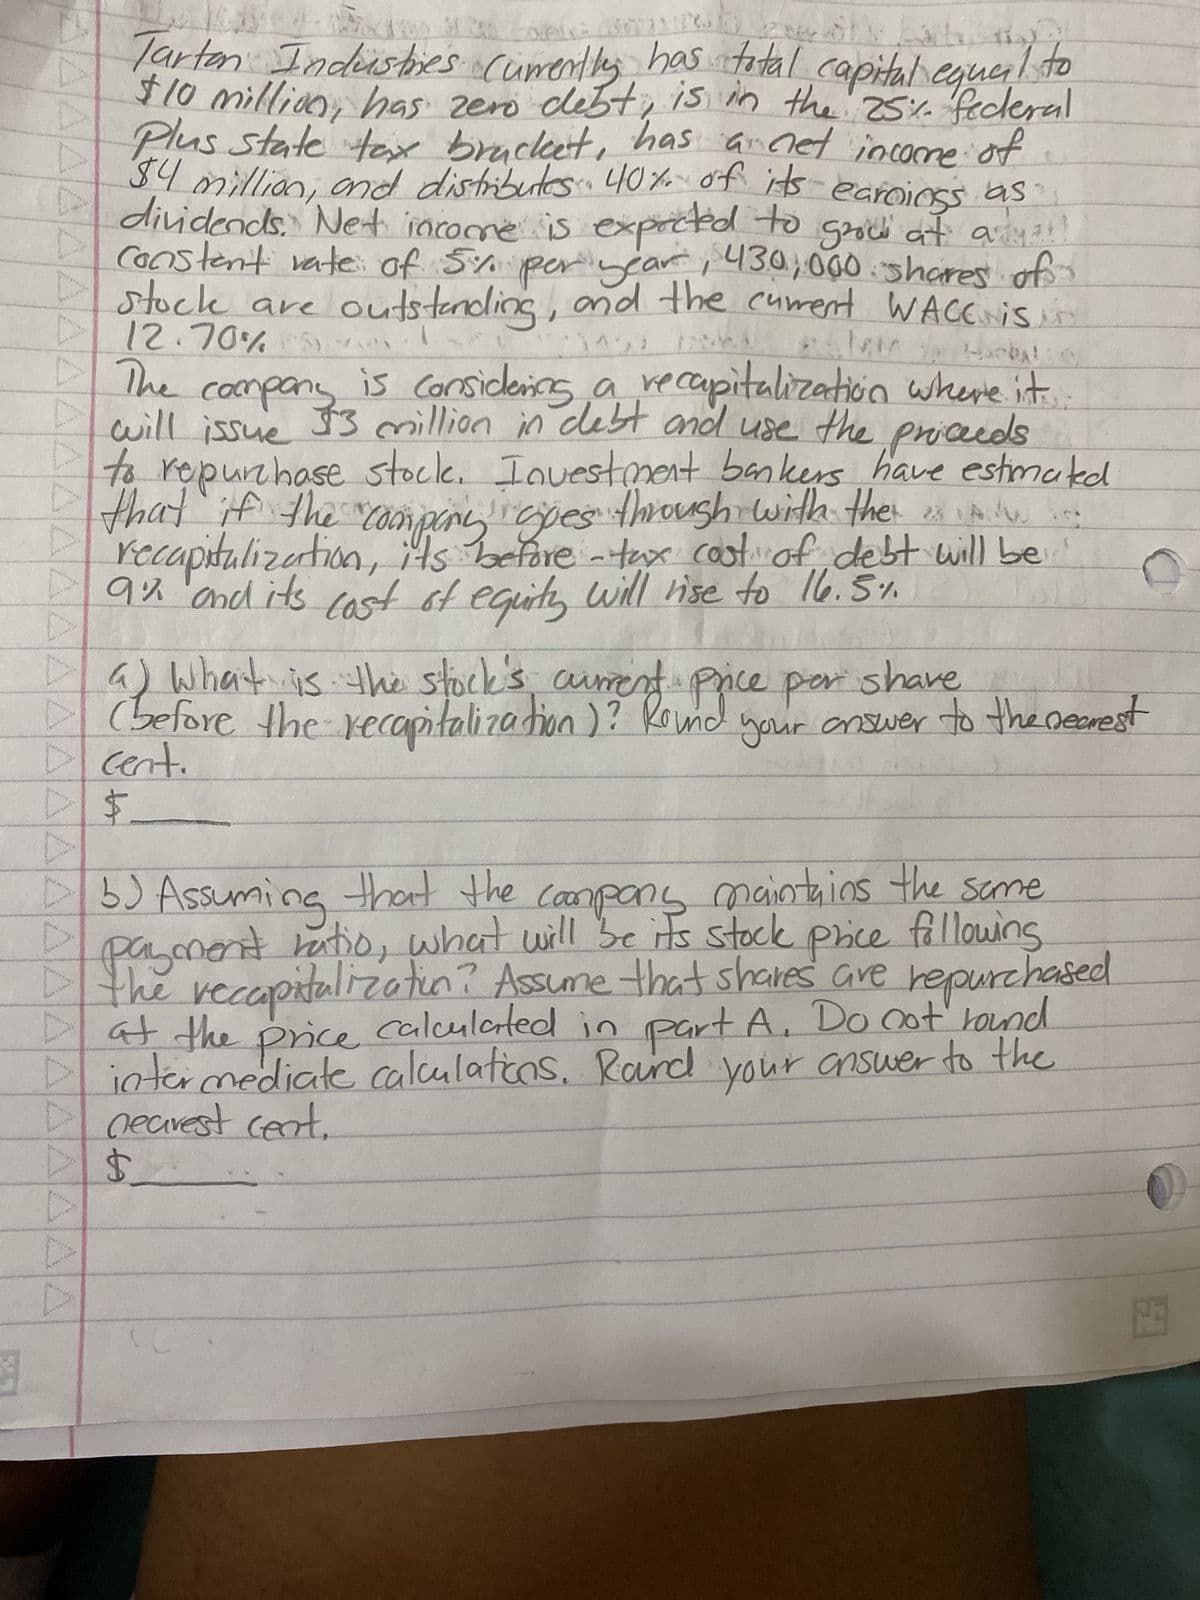 Tartan Industries currently has total capital equal to
$10 million, has zero debt, is in the 25% federal
plus state tax bracket, has a net income of
$4 million, and distributes 40% of its earnings as
dividends. Net income is expected to grow at a
constant rate of 5% per year, 430,000 shares of
stock are outstanding, and the current WACC is
12.70%
The company is considering a recapitalization where it
will issue $3 million in debt and use the proceeds
to repurchase stock. Investment bankers have estimated
that if the company goes through with the
recapitalization, its before-tax cost of debt will be
9% and its cost of equity will rise to 16.5%
a) What is the stock's current price per share
(before the recapitalization)? Round your answer to the nearest
cent.
$
b) Assuming that the company maintains the same
payment ratio, what will be its stock price following
the recapitalizatin? Assume that shares are repurchased
at the price calculated in part A. Do not round
intermediate calculations. Round your answer to the
nearest cent.
$